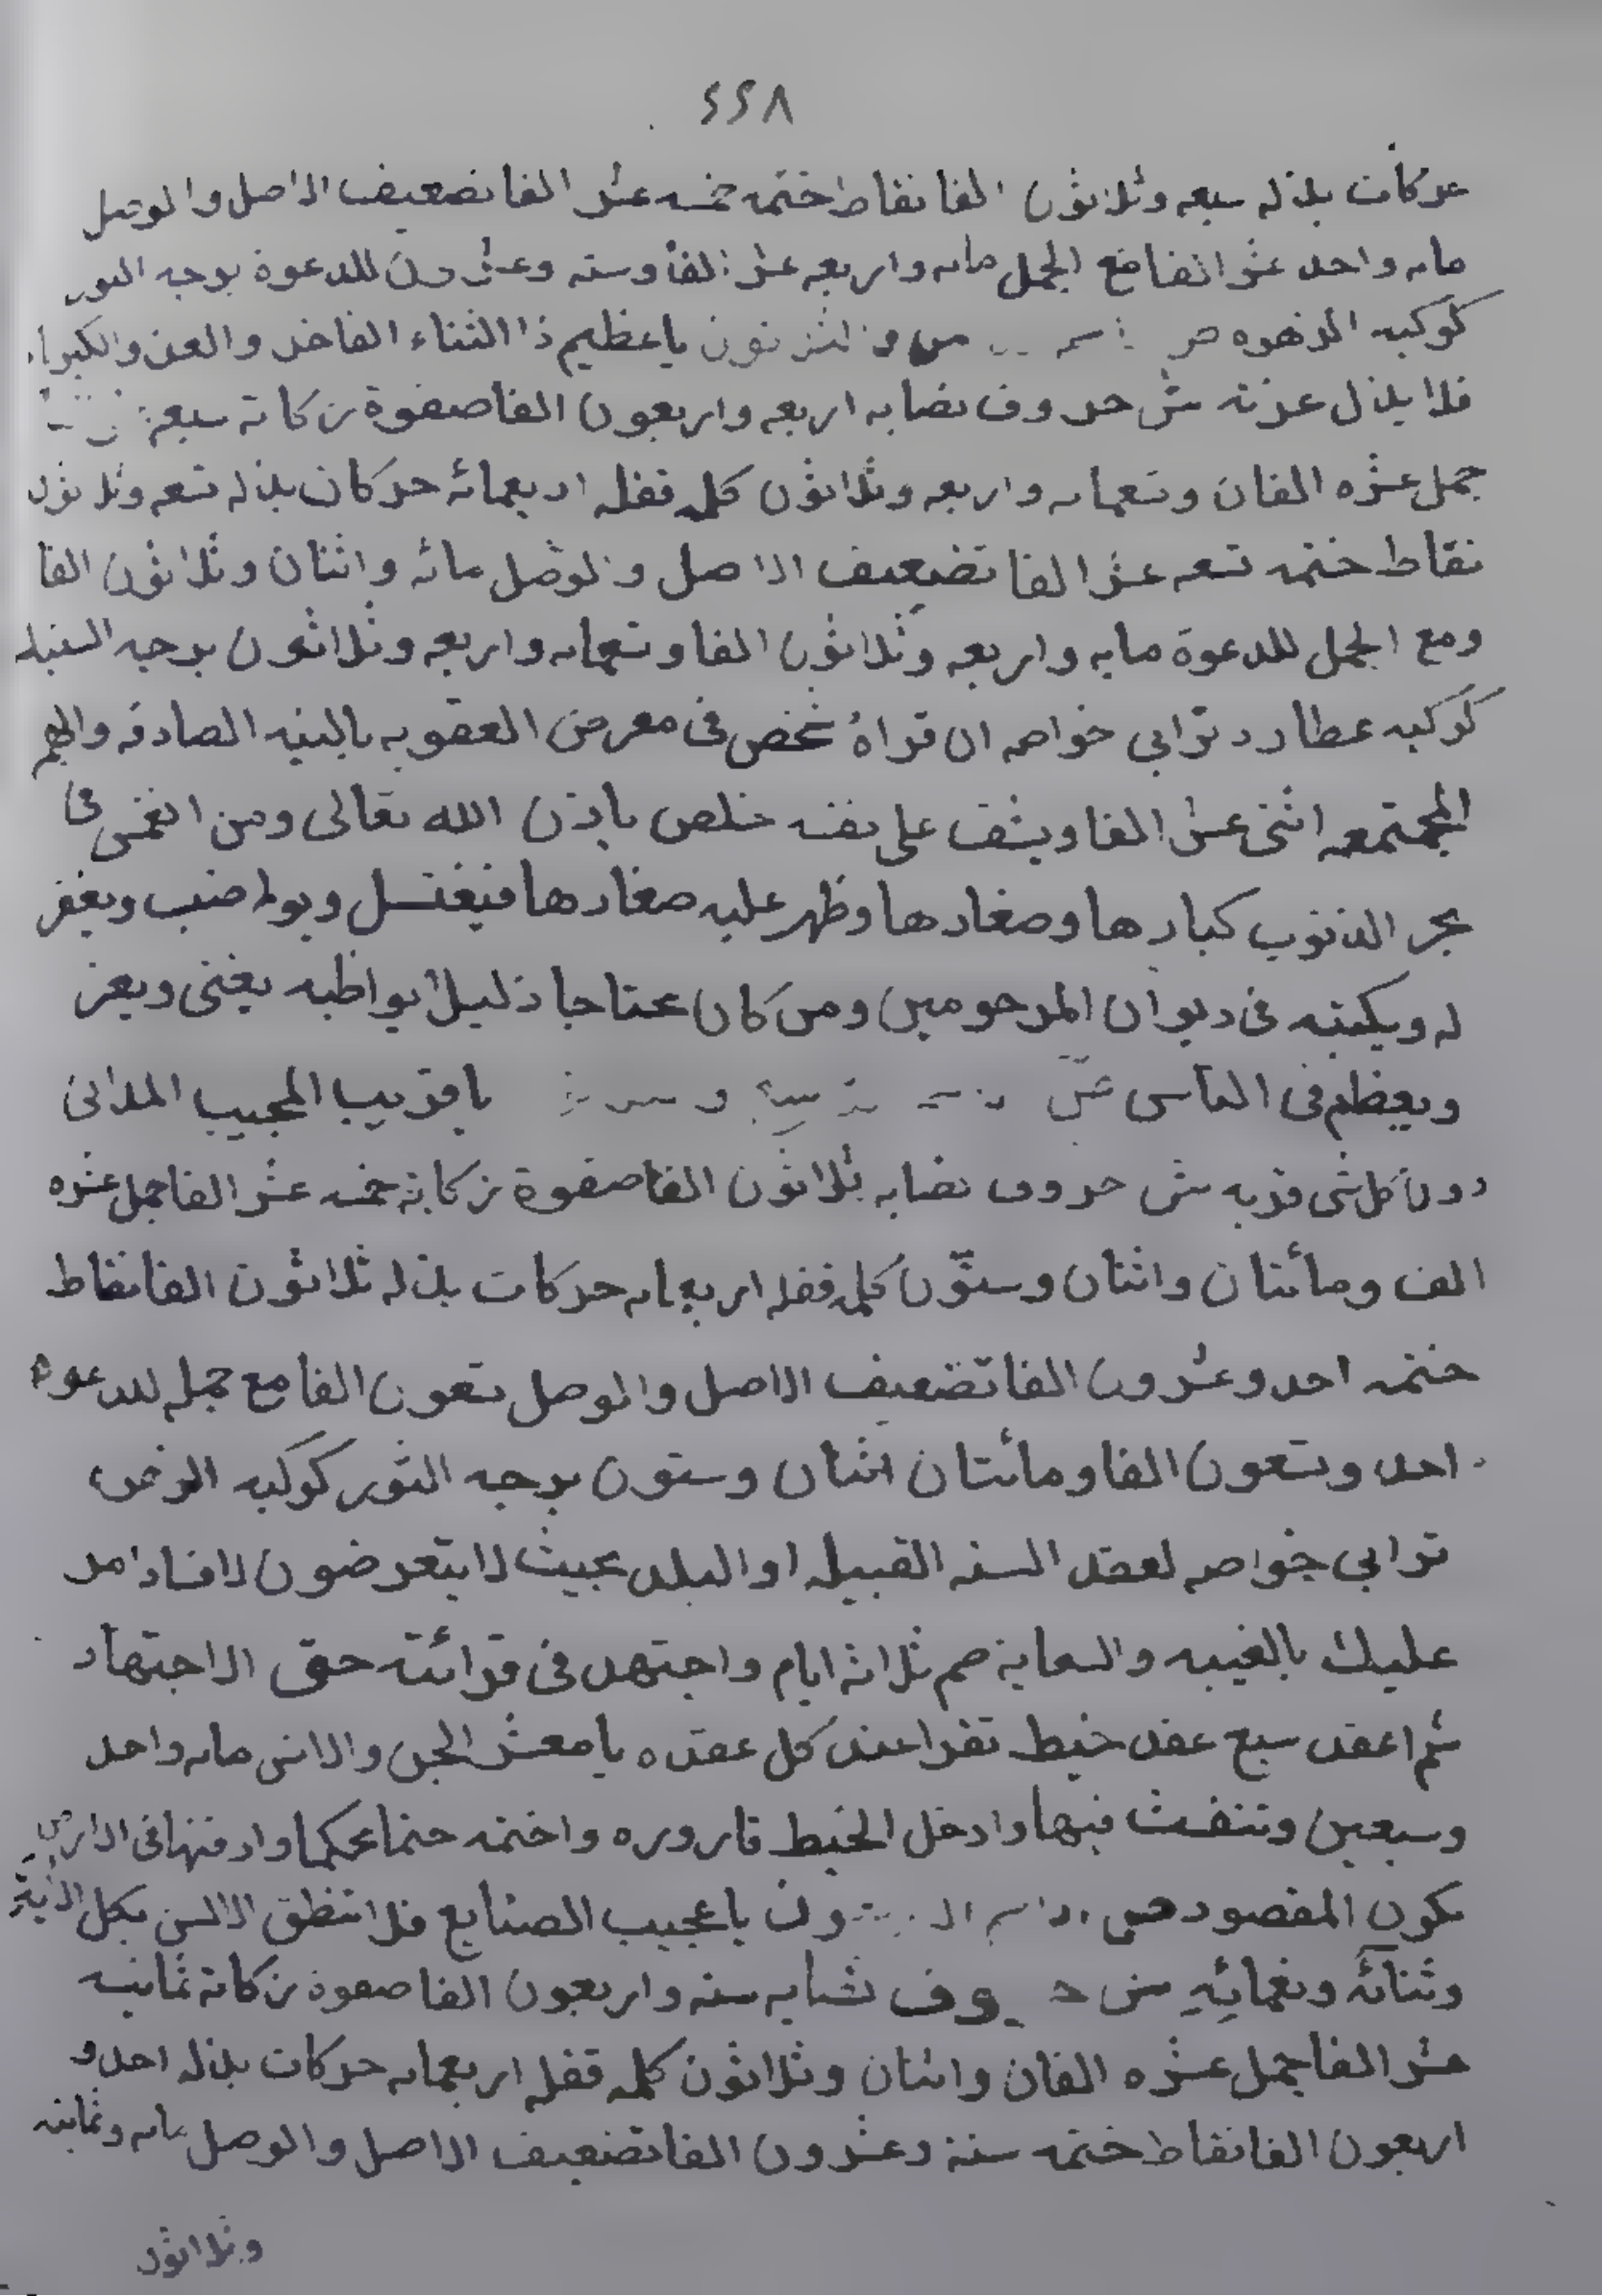 ٤٢٨
حركات بذله سبعه وثلاثون الفا نقاط ختمه خمسه عشر الفا تضعيف الاصل والوصل
مايه واحد عشر الفا مع الجمل مايه واربعه عشر الفا وسته وعشرون للدعوة بوجه الثور
كوكبه الزهره يا عظيم ذا الثناء الفاخر والعز والكبرياء
فلا يذل عزته ش حروف نصابه اربعه واربعون الفا صفوة زكاته سبعة
جمل عشره الفان وتسعمايه واربعه وثلاثون كله قفله اربعمائه حركات بذله تسعه وثلاثون
نقاط ختمه تسعه عشر الفا تضعيف الاصل والوصل مائه واثنان وثلاثون الفا
ومع الجمل للدعوة مايه واربعه وثلاثون الفا وتسعمايه واربعه وثلاثون بوجه السنبله
كوكبه عطارد ترابي خواصه ان قراه شخص فى معرض العقوبه بالنيه الصادقه والهم
المجتمعه اثنى عشر الفا وينفث على نفسه خلص باذن الله تعالى ومن انغمس فى
بحر الذنوب كبارها وصغارها وظهر عليه صغارها فيغتسل ويواضب ويغفر
له ويكتبه فى ديوان المرحومين ومن كان محتاجا ذليلا يواظبه يغنى ويعز
ويعظم فى الناس يا قريب المجيب المدانى
دون كل شى قربه ش حروف نصابه ثلاثون الفا صفوة زكاته خمسه عشر الفا جمل عشره
الف ومائتان واثنان وستون كله قفله اربعمايه حركات بذله ثلاثون الفا نقاط
ختمه احد وعشرون الفا تضعيف الاصل والوصل تسعون الفا مع جمله للدعوه
احد وتسعون الفا ومائتان اثنان وستون بوجه الثور كوكبه الزهره
ترابي خواصه لعقد السنه القبيله او البلد بحيث لا يتعرضون لافساد امر
عليك بالغيبه والسعاية صم ثلاثة ايام واجتهد فى قرائته حق الاجتهاد
ثم اعقد سبع عقد خيط تقرا عند كل عقده يا معشر الجن والانس مايه واحد
وسبعين وتنفث فيها وادخل الخيط قاروره واختمه ختما محكما وادفنها فى الارض
يكون المقصود يا عجيب الصنايع فلا تنطق الالسن بكل الائه
وثنائه ونعمائه ش حروف نصابه سته واربعون الفا صفوة زكاته ثمانيه
عشر الفا جمل عشره الفان واثنان وثلاثون كله قفله اربعمايه حركات بذله احد و
اربعون الفا نقاط ختمه ستة وعشرون الفا تضعيف الاصل والوصل مايه وثمانيه
وثلاثون